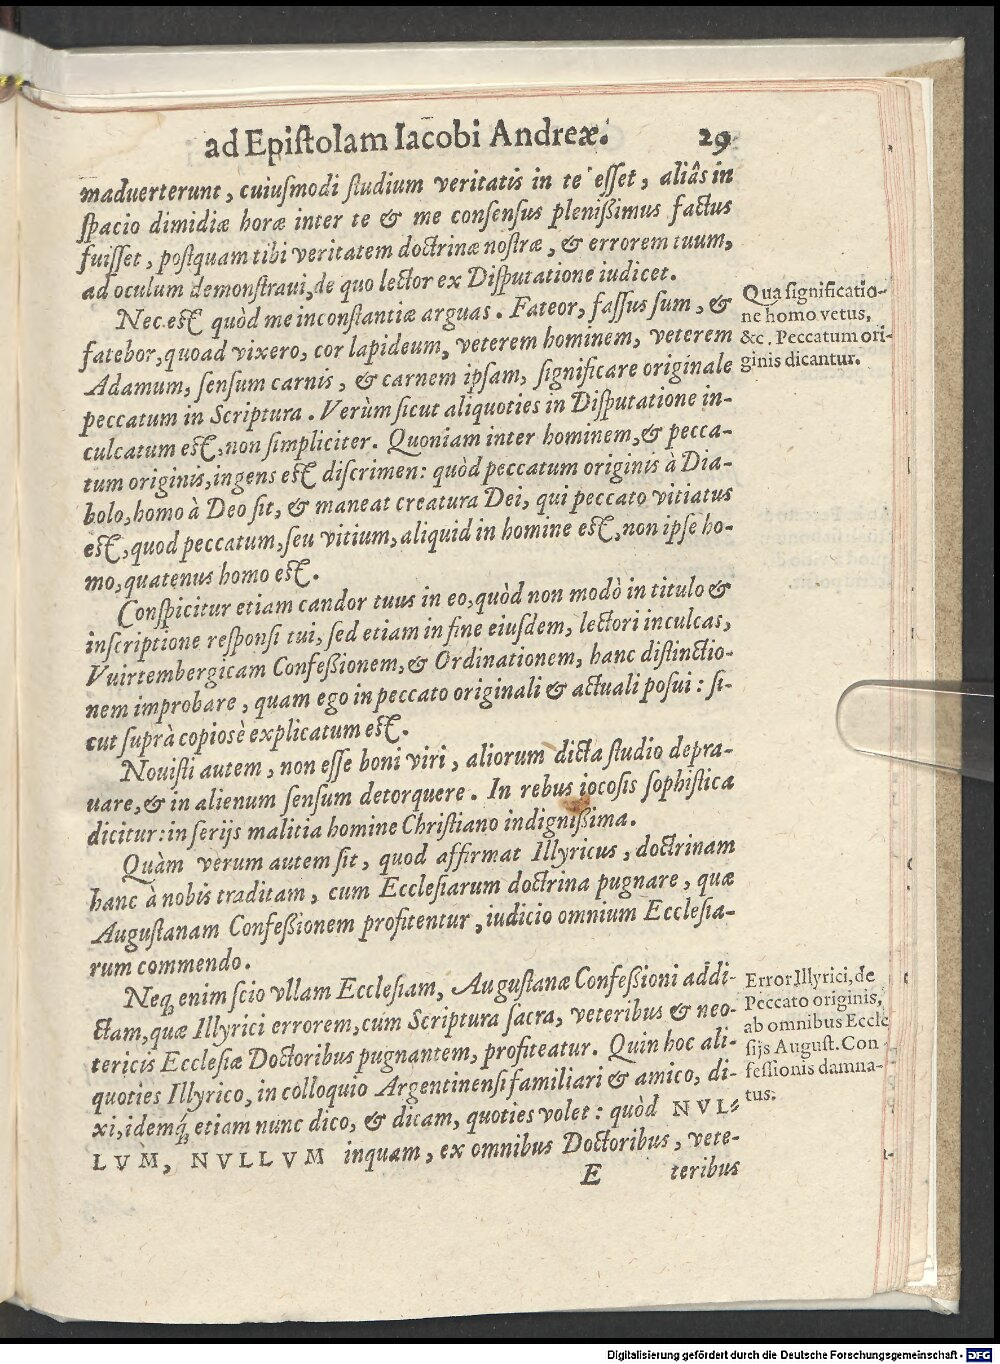 ad Epistolam Iacobi Andreæ. 29
maduerterunt, cuiusmodi studium veritatis in te esset, aliâs in
spacio dimidiæ horæ inter te & me consensus plenißimus factus
fuisset, postquam tibi veritatem doctrinæ nostræ, & errorem tuum,
ad oculum demonstraui, de quo lector ex Disputatione iudicet.
Nec est quòd me inconstantiæ arguas. Fateor, fassus sum, &
fatebor, quoad vixero, cor lapideum, veterem hominem, veterem
Adamum, sensum carnis, & carnem ipsam, significare originale
peccatum in Scriptura. Verùm sicut aliquoties in Disputatione in-
culcatum est, non simpliciter. Quoniam inter hominem, & pecca-
tum originis, ingens est discrimen: quòd peccatum originis à Dia-
bolo, homo à Deo sit, & maneat creatura Dei, qui peccato vitiatus
est, quod peccatum, seu vitium, aliquid in homine est, non ipse ho-
mo, quatenus homo est.
Qua significatio-
ne homo vetus,
&c. Peccatum ori-
ginis dicantur.
Conspicitur etiam candor tuus in eo, quòd non modò in titulo &
inscriptione responsi tui, sed etiam in fine eiusdem, lectori inculcas,
Vuirtembergicam Confeßionem, & Ordinationem, hanc distinctio-
nem improbare, quam ego in peccato originali & actuali posui: si-
cut suprà copiosè explicatum est.
Nouisti autem, non esse boni viri, aliorum dicta studio depra-
uare, & in alienum sensum detorquere. In rebus iocosis sophistica
dicitur: in serijs malitia homine Christiano indignißima.
Quàm verum autem sit, quod affirmat Illyricus, doctrinam
hanc à nobis traditam, cum Ecclesiarum doctrina pugnare, quæ
Augustanam Confeßionem profitentur, iudicio omnium Ecclesia-
rum commendo.
Neq; enim scio vllam Ecclesiam, Augustanæ Confeßioni addi-
ctam, quæ Illyrici errorem, cum Scriptura sacra, veteribus & neo-
tericis Ecclesiæ Doctoribus pugnantem, profiteatur. Quin hoc ali-
quoties Illyrico, in colloquio Argentinensi familiari & amico, di-
xi, idemq́; etiam nunc dico, & dicam, quoties volet: quòd NVL-
LVM, NVLLVM inquam, ex omnibus Doctoribus, vete-
Error Illyrici, de
Peccato originis,
ab omnibus Eccle
sijs August. Con
fessionis damna-
tus.
E teribus
Digitalisierung gefördert durch die Deutsche Forschungsgemeinschaft - DFG